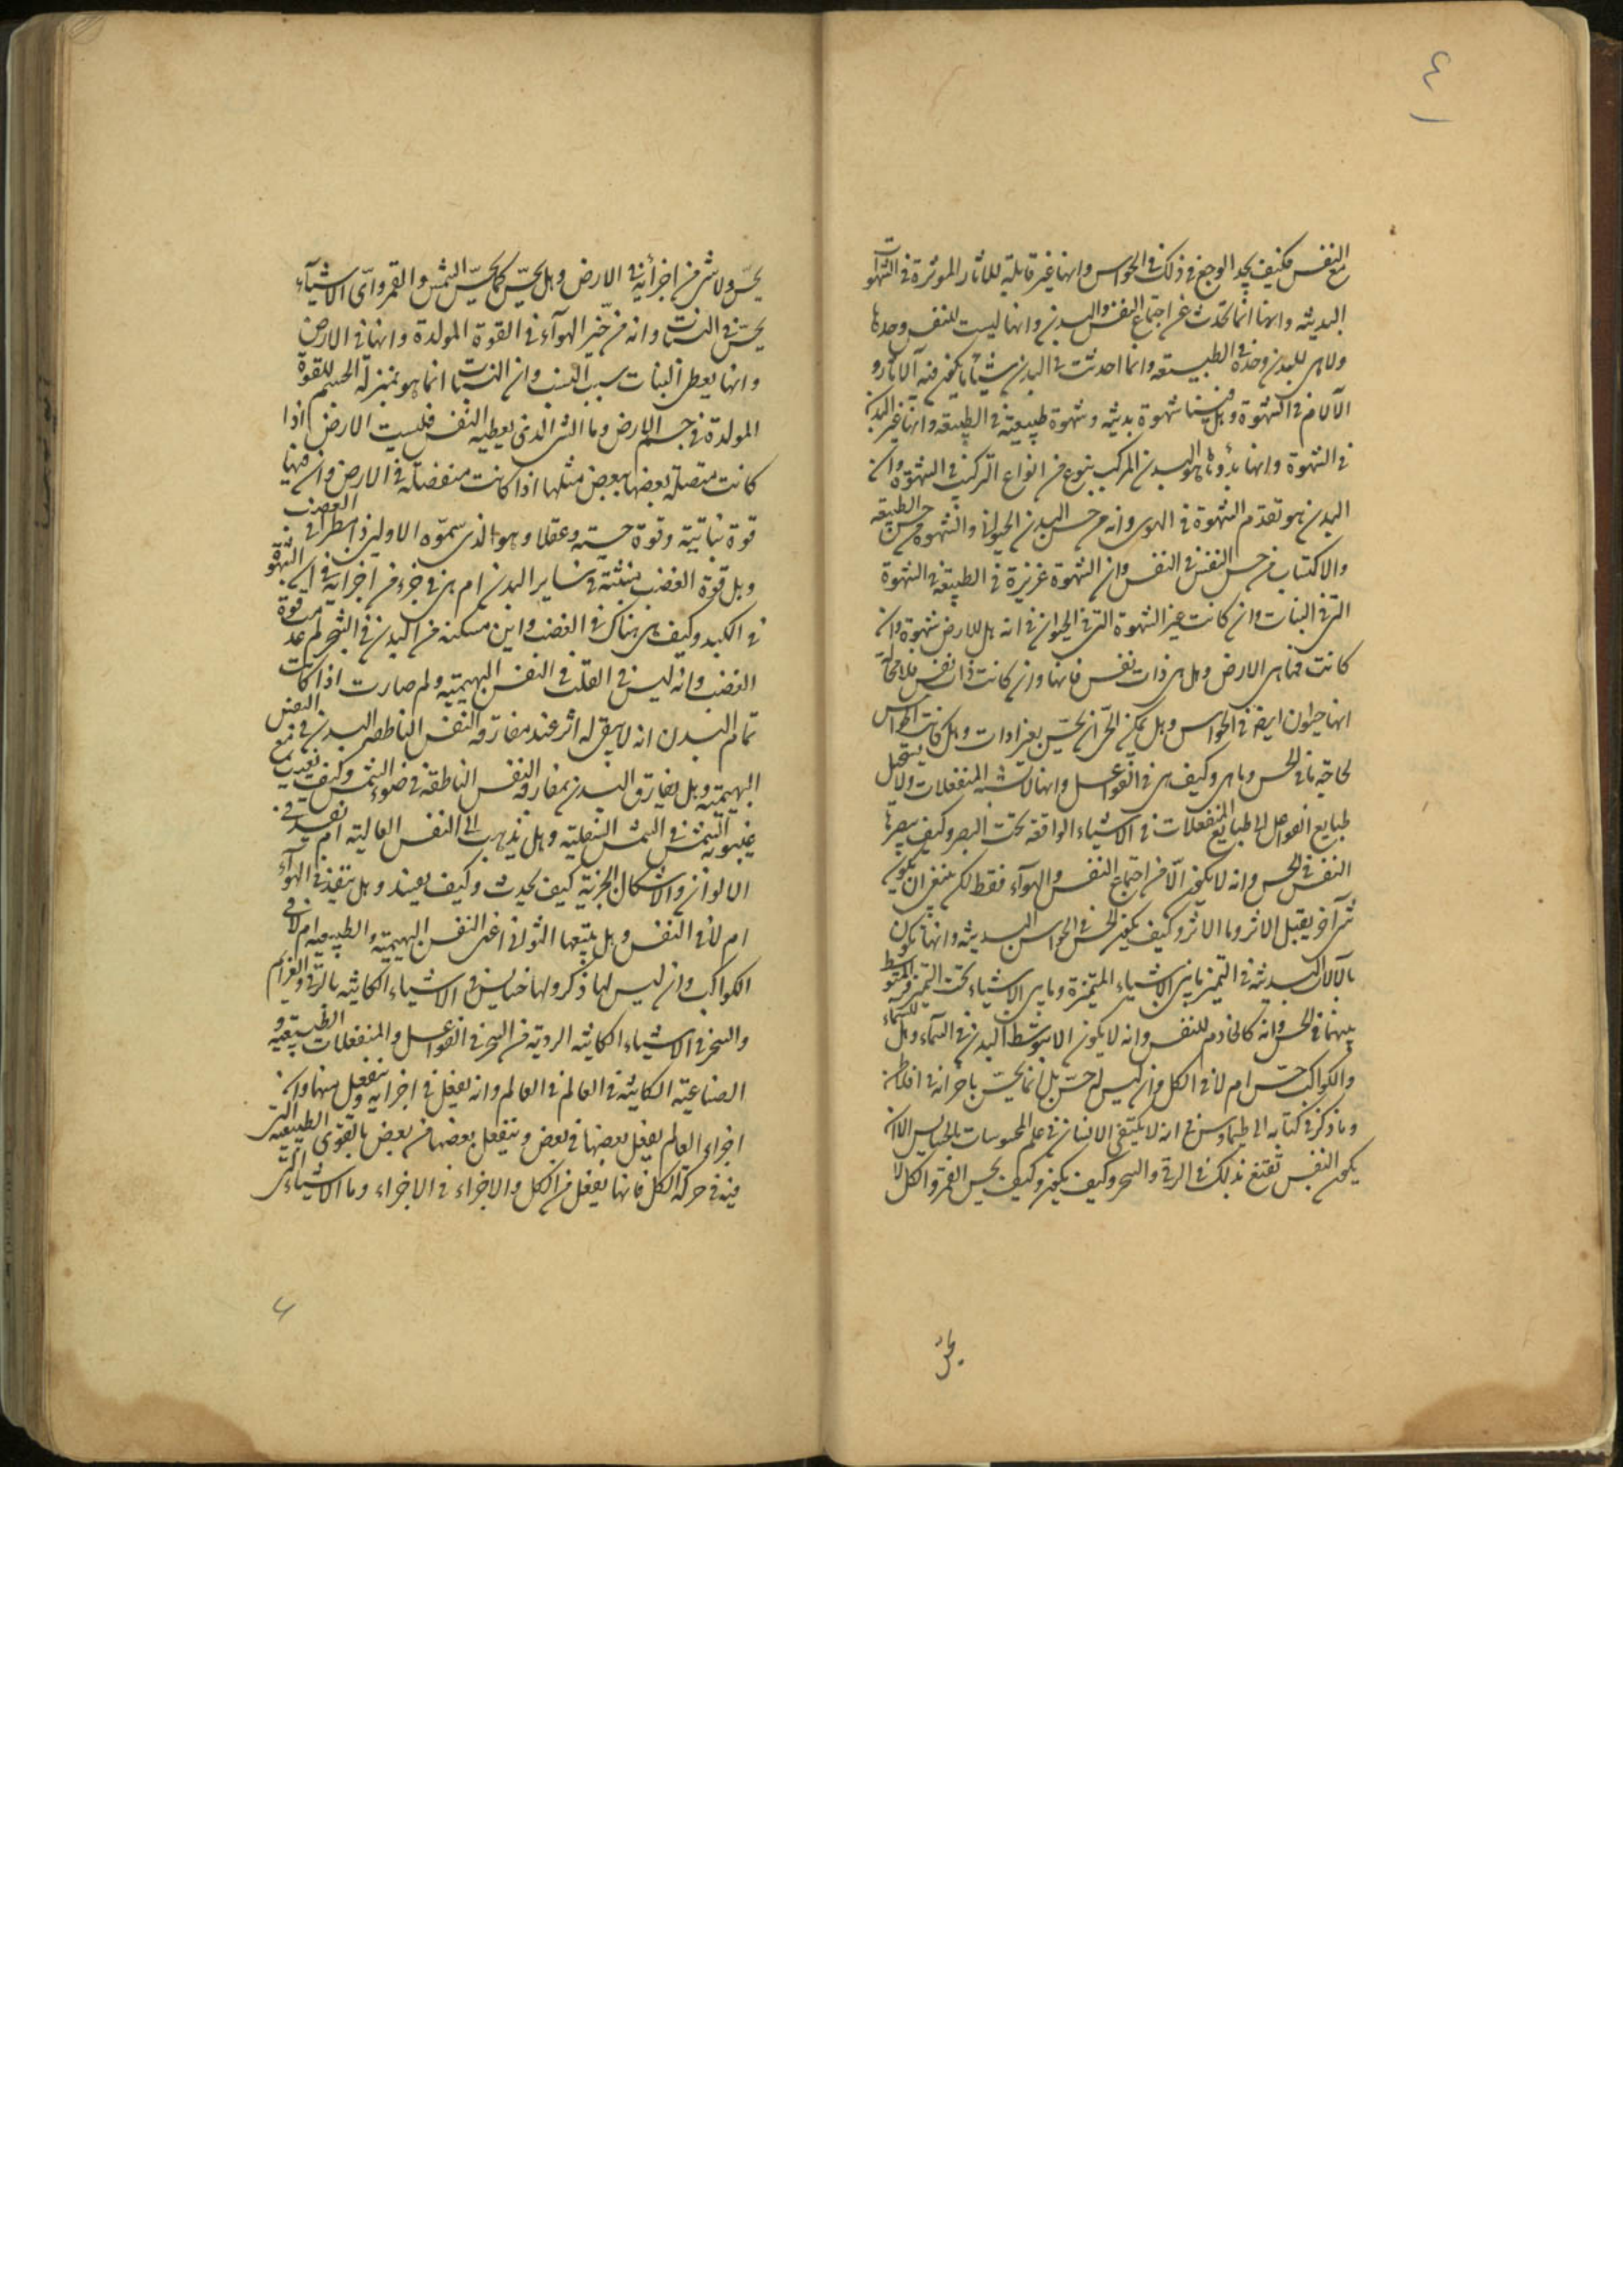 ٤
مع النفس فكيف يجد الوجع في ذلك في الحواس وانها غير قابلة للآثار الموثرة في الشهوات
البدنية وانها انما تحدث عن اجتماع النفس والبدن وانها ليست للنفس وحدها
ولا هى للبدن وحده في الطبيعة وانما احدثت في البدن شيئا ما يكون فيه الآثار و
الآلام في الشهوة وهل فينا شهوة بدنية وشهوة طبيعية في الطبيعة وانها غير البدن
في الشهوة وانها بدؤها هو البدن المركب بنوع من انواع التركيب في الشهوة وان
البدن هو تقدم الشهوة في الهوى وانه من حس البدن الحيوانى والشهوة من حس الطبيعة
والاكتساب من حس النفس في النفس وان الشهوة غريزة في الطبيعة في الشهوة
التى في النبات وان كانت غير الشهوة التى في الحيوان في انه هل للارض شهوة وان
كانت فما هى الارض وهل هى ذات نفس فانها وان كانت ذات نفس فلا محالة
انها حيوان ايضا في الحواس وهل يمكن الحى ان يحس بغير ادات وهل كانت الحواس
لحاجة ما في الحس وما هى وكيف هى في الفواعل وانها لا تشبه المنفعلات ولا يستحيل
طبايع الفواعل الى طبايع المنفعلات في الاشياء الواقعة تحت البصر وكيف يبصرها
النفس في الحس وانه لا يكون الّا من اجتماع النفس والهوآء فقط لكن ينبغى ان يكون
شئ آخر يقبل الاثر وما الاثر وكيف يكون الحس في الحواس البدنية وانها تكون
بالآلات البدنية في التميز ما بين الاشياء المتميزة وما بين الاشياء تحت التميز والمتوسط
بينهما في الحس وانه كالخادم للنفس وانه لا يكون الا بتوسط البدن في السماء وهل للسماء
والكواكب حسّ ام لا في الكل وان ليس له حسّ بل انما يحسّ باجزائه في افلاطن
وما ذكر في كتابه الى طيماوس في انه لا يكتفى الانسان في علم المحسوسات بالحسايس الا ان
يكون النفس تقنع بذلك في الرقى والسحر وكيف يكون وكيف يحس القمر والكل لا
يحس
يحسّ ولا شئ من اجزائه في الارض وهل يحسّ كما يحسّ الشمس والقمر واىّ الاشيآء
يحسّ في النبات وانه من حيّز الهوآء في القوة المولدة وانها في الارض
وانها يعطى النبات سبب النبت وان النبات انما هو بمنزلة الجسم للقوة
المولدة في جسم الارض وما الشئ الذى يعطيه النفس فليست الارض اذا
كانت متصلة بعضها ببعض مثلها اذا كانت منفصلة في الارض وان فيها
قوة نباتية وقوة حسية وعقلا وهو الذى سموه الاولين ذامطرا في الغضب
وهل قوة الغضب منبثة في ساير البدن ام هى في جزء من اجزايه في ان الشهوة
في الكبد وكيف هى هناك في الغضب واين مسكنه من البدن في الشجر لم عدمت قوة
الغضب وانه ليس في القلب في النفس البهيمية ولم صارت اذا كانت
تمام البدن انه لا يبقى له اثر عند مفارقة النفس الناطقة البدن في النفس
البهيمية وهل يفارق البدن بمفارقة النفس الناطقة في ضوء الشمس وكيف يغيب مع
غيبوبة الشمس في الشمس السفلية وهل يذهب الى النفس العالية ام يفسد في
الالوان والاشكال الجرمية كيف يحدث وكيف يفسد وهل ينفذ في الهوآء
ام لا في النفس وهل يتبعها الثوانى اعنى النفس البهيمية والطبيعية ام لا في
الكواكب وان ليس لها ذكر ولها حسايس في الاشياء الكائنة بالرقى والعزائم
والسحر في الاشياء الكائنة الردية من السحر في الفواعل والمنفعلات الطبيعية و
الصناعية الكائنة في العالم في العالم وانه يفعل في اجزايه وينفعل منها وان
اجزاء العالم يفعل بعضها في بعض وينفعل بعضها من بعض بالقوى الطبيعية التى
فيه في حركة الكل فانها تفعل في الكل والاجزاء في الاجزاء وما الاشياء التى